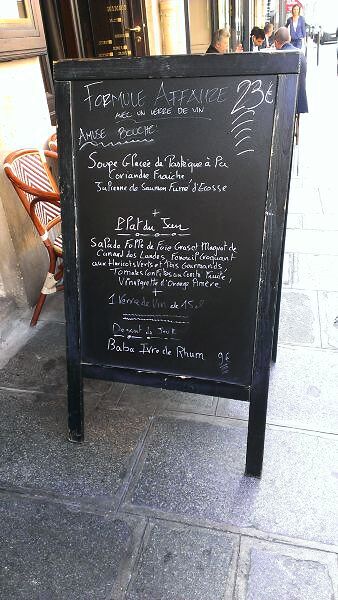 FORMULE AFFAIRE 23€
AVEC UN VERRE DE VIN
AMUSE BOUCHE
Soupe Glacée de Pastèque à La
Coriandre Fraiche,
Julienne de Saumon Fumé d'Ecosse
+
Plat du Jour
Salade Folle de Foie Gras et Magret de
Canard des Landes, Fenouil Croquant
aux Haricots Verts et Pois Gourmands
Tomates Confites au Cumin
Vinaigrette d'Orange Amère
+
1 Verre de Vin de 15cl
Dessert du Jour
Baba Ivre de Rhum 9€